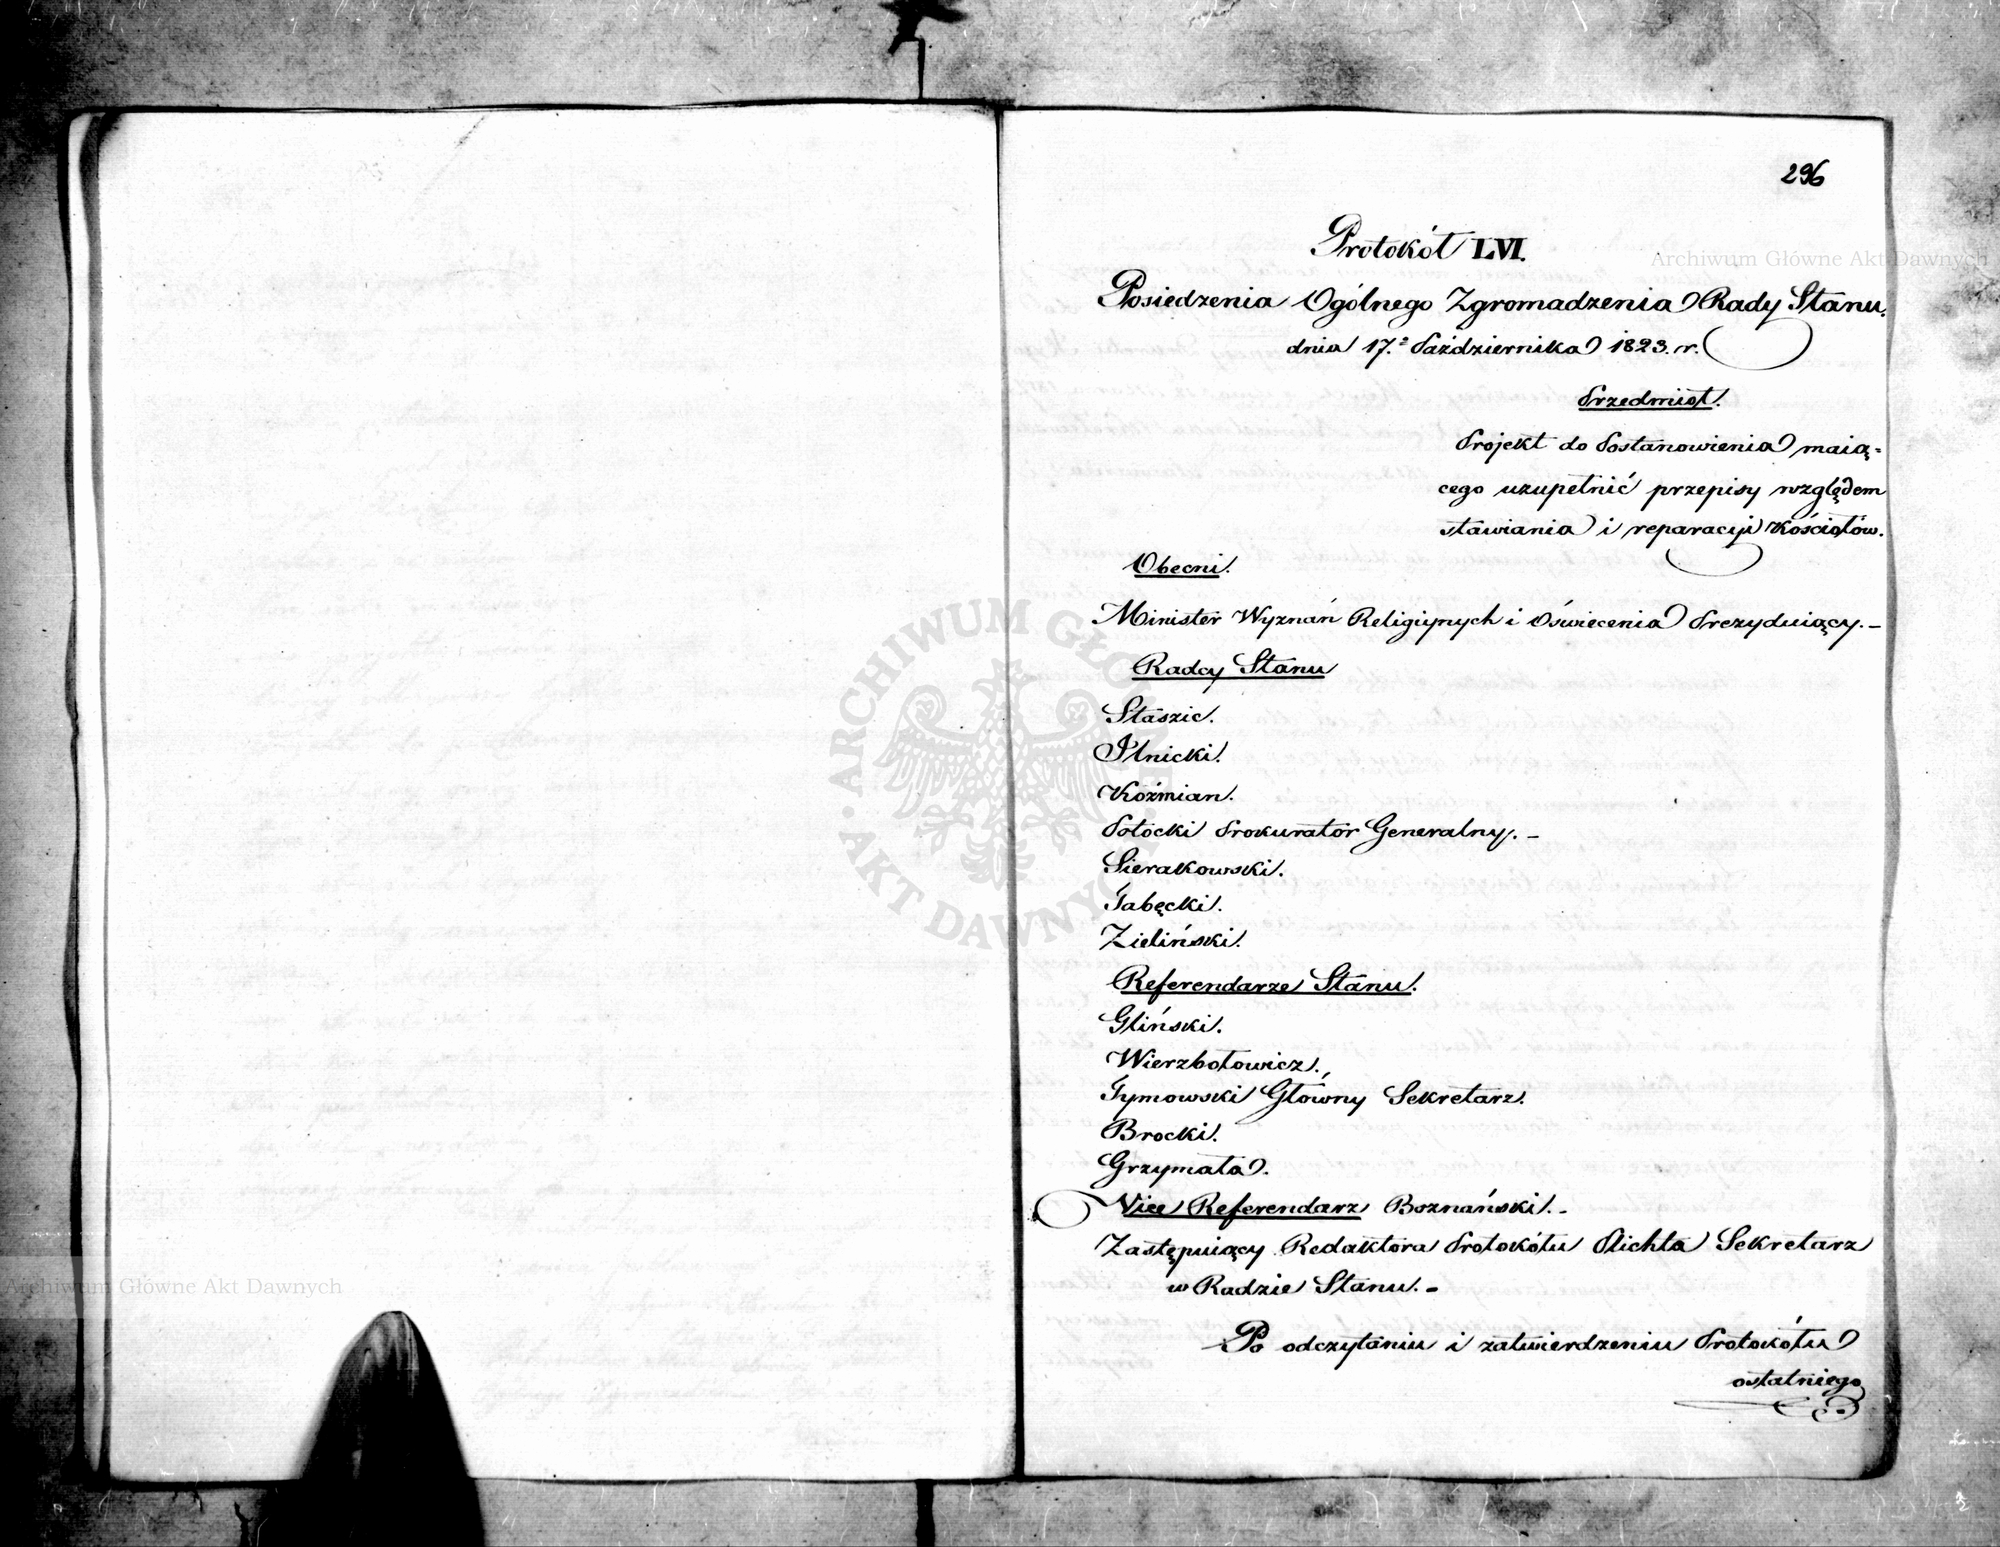 296
Protokół LVI.
Posiedzenia Ogólnego Zgromadzenia Rady Stanu.
dnia 17.º Października 1823. r.
Przedmiot.
Projekt do Postanowienia maią=
cego uzupełnić przepisy względem
stawiania i reparacyi Kościołów.
Obecni.
Minister Wyznań Religiynych i Oświecenia Prezyduiący. –
Radcy Stanu
Staszic.
Ilnicki.
Koźmian.
Potocki Prokurator Generalny. –
Sierakowski.
Tabęcki.
Zieliński.
Referendarze Stanu.
Gliński.
Wierzbołowicz.
Tymowski Główny Sekretarz.
Brocki.
Grzymała.
Vice Referendarz Boznański. –
Zastępuiący Redaktora Protokółu Plichta Sekretarz
w Radzie Stanu. –
Po odczytaniu i zatwierdzeniu Protokółu
ostatniego
Archiwum Główne Akt Dawnych
Archiwum Główne Akt Dawnych
ARCHIWUM GŁÓWNE · AKT DAWNYCH ·